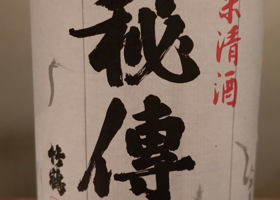 米清酒
秘傳
竹鶴